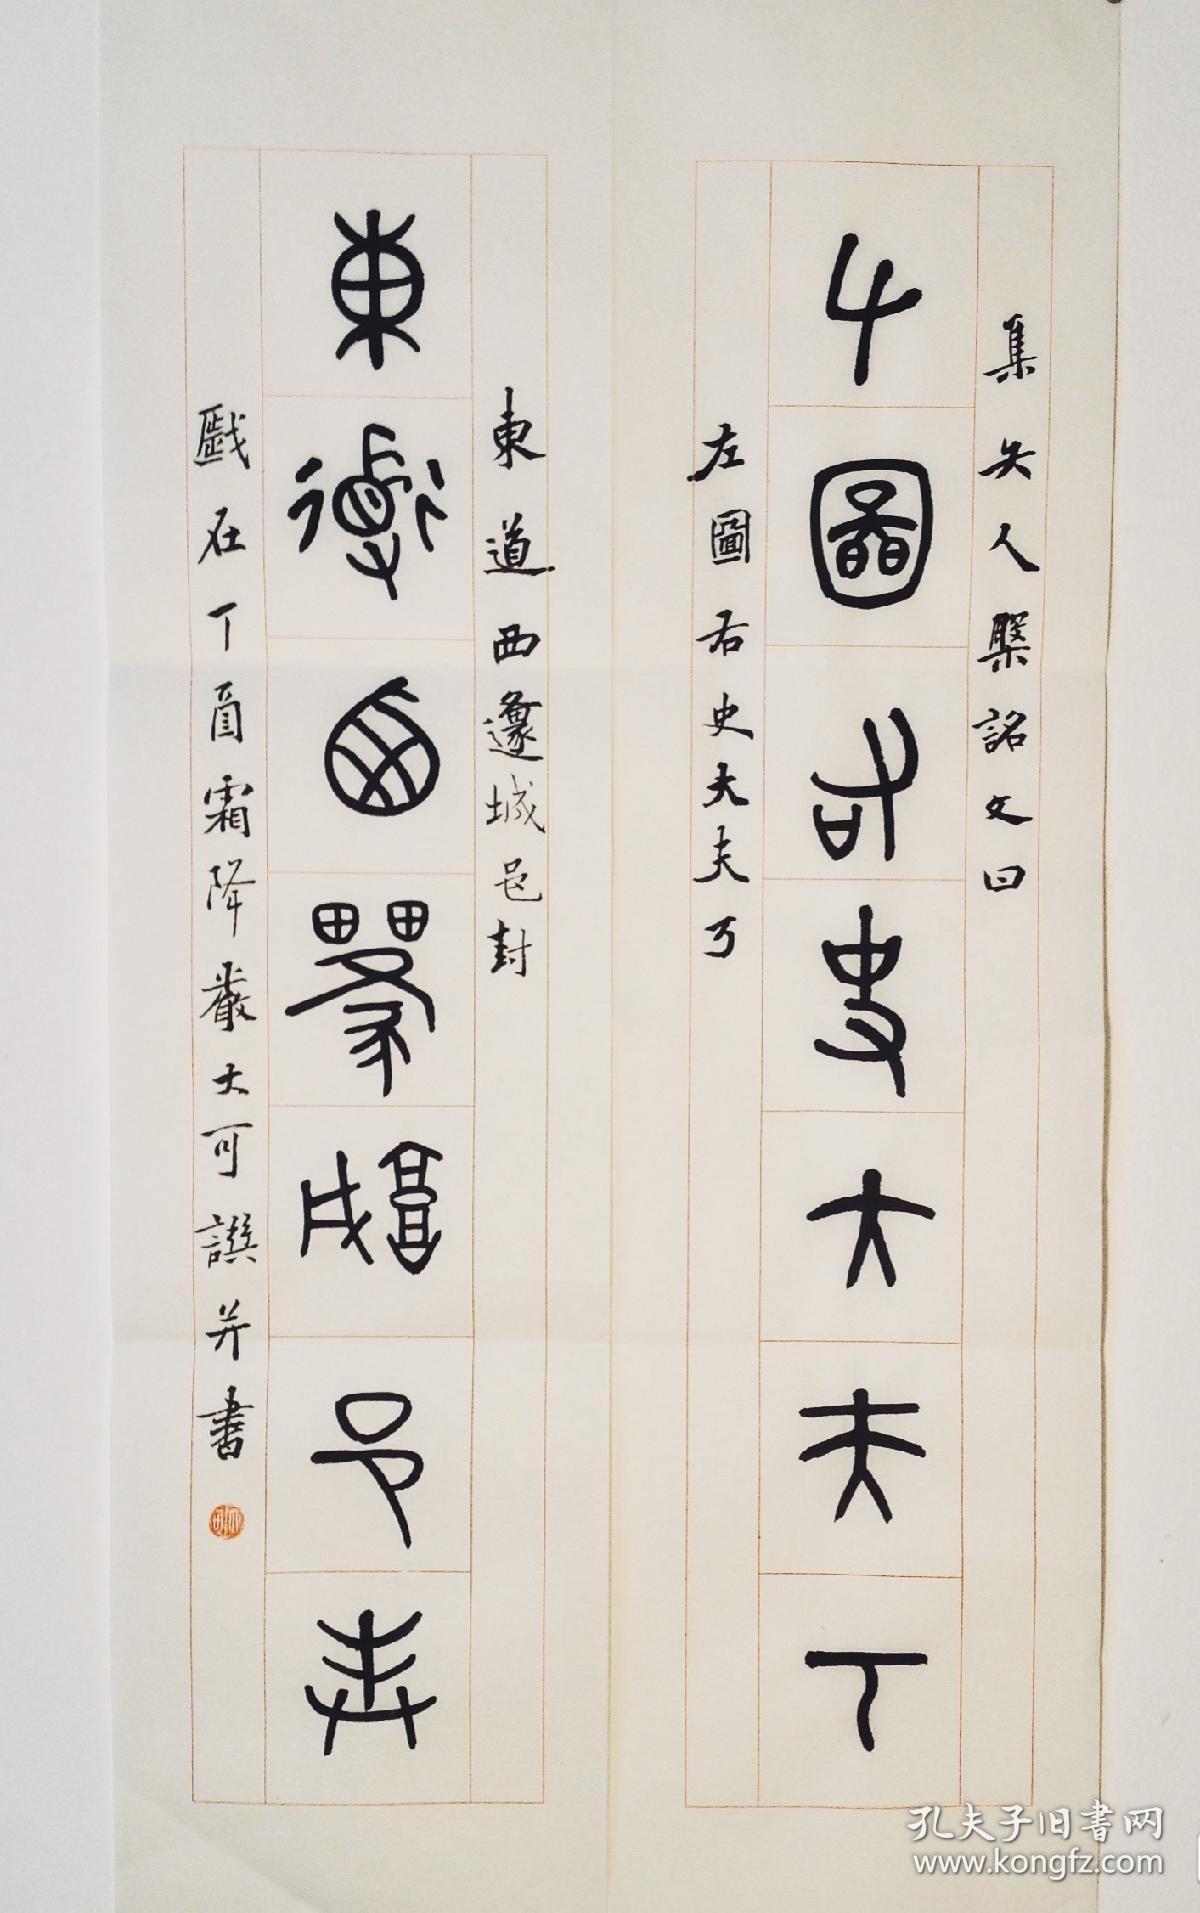 集矢人盤銘文曰
𠂇圖右史大夫丂
左圖右史大夫丂
東道西邍城邑封
東道西邍城邑封
歲在丁酉霜降嚴大可譔并書
孔夫子旧書网
www.kongfz.com